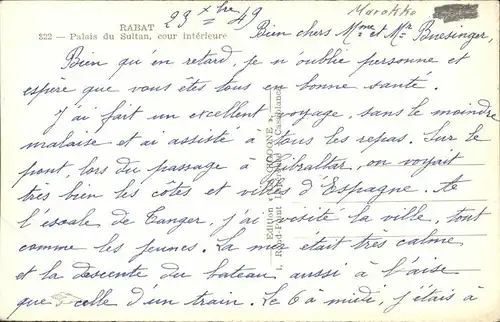 Marokko
RABAT
322 - Palais du Sultan, cour intérieure
23 Xbre 49
Bien chers Mme et Mr Buesinger,
Bien qu'en retard, je n'oublie personne et
espère que vous êtes tous en bonne santé.
J'ai fait un excellent voyage, sans le moindre
malaise et ai assisté à tous les repas. Sur le
pont, lors du passage à Gibraltar, on voyait
très bien les côtes et villes d'Espagne. A
l'escale de Tanger, j'ai visité la ville, tout
comme les jeunes. La mer était très calme
et la descente du bateau aussi à l'aise
que celle d'un train. Le 6 à midi, j'étais à
Edition
Casablanca